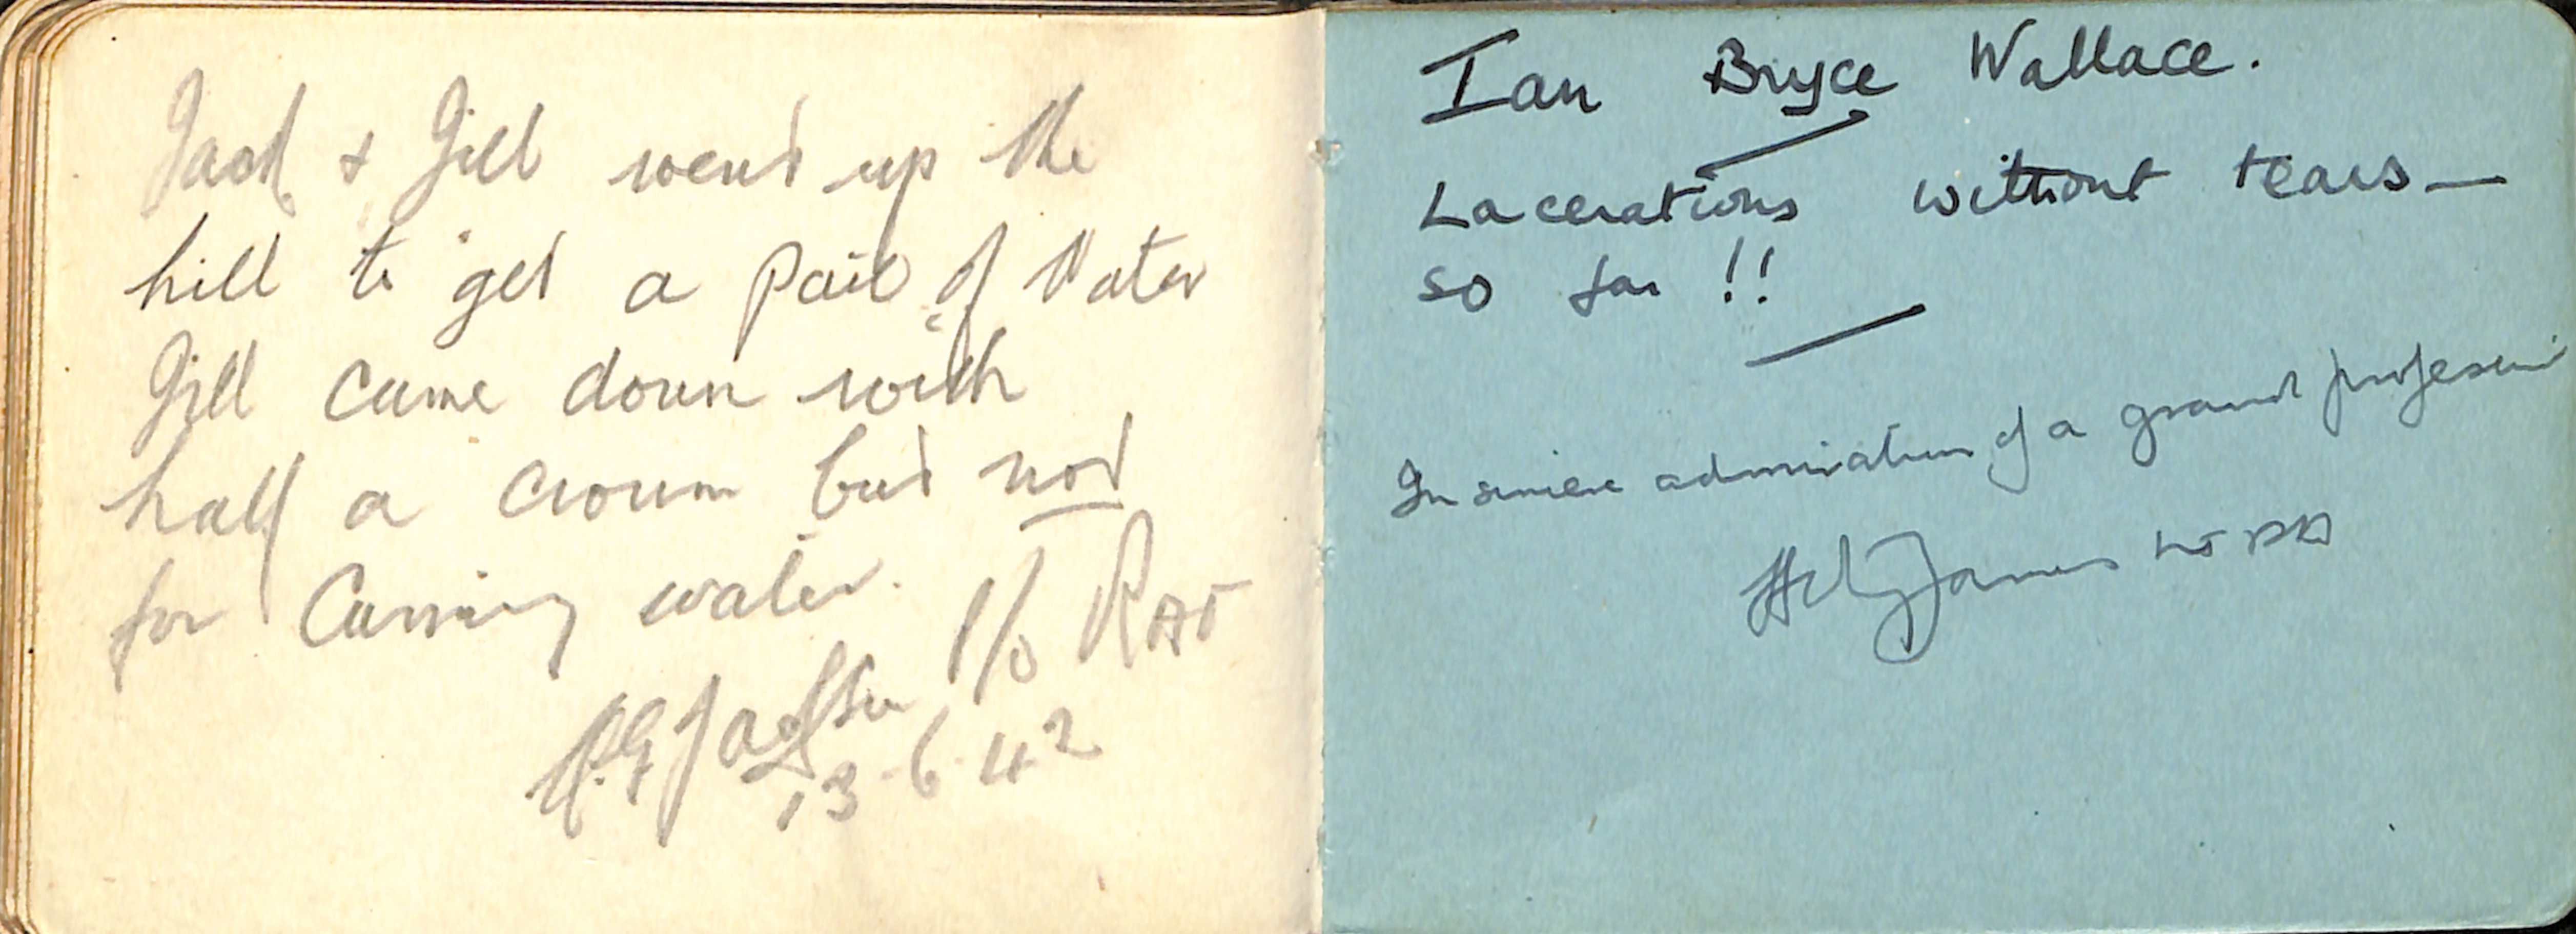 Jack & Gill went up the
hill to get a Pail of Water
Gill came down with
half a crown but not
for Carrying water.
P/O RAF
13-6-42
Ian Bryce Wallace.
Lacerations without tears —
so far !!
In sincere admiration of a grand profession
James